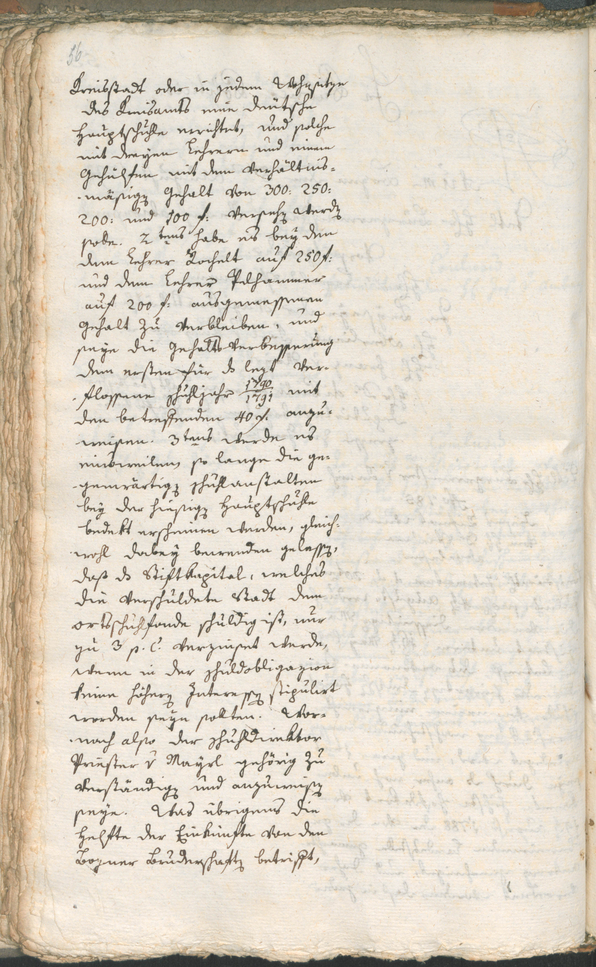 56.
Kreisstadt oder in jedem Wohnsitze
des Kreisamts eine deutsche
Hauptschuhle errichtet, und solche
mit dreyen Lehrern und einem
Gehülfen mit dem verhältnis-
mäsigen Gehalt von 300: 250:
200: und 100 f: versehen werden
solle. 2tens habe es bey den
dem Lehrer Kochelt auf 250 f:
und dem Lehrer Pelhammer
auf 200 f. ausgemessenen
Gehalt zu verbleiben, und
seye die Gehalts Verbesserung
dem ersten für das lezt ver-
flossene Schuhljahr 1790/1791 mit
den betreffenden 40 f. anzu-
weisen. 3tens werde es
einsweilen, so lange die ge-
genwärtigen Schuhlanstalten
bey der hiesigen Hauptschuhle
bedekt erscheinen werden, gleich-
wohl dabey bewenden gelassen,
daß das Stiftkapital, welches
die verschuldete Stadt dem
Ortsschuhlfonde schuldig ist, nur
zu 3 p. C. verzinset werde,
wenn in der Schuldobligazion
keine höhern Interessen stipulirt
worden seyn sollten. Wor-
nach also der Schuhldirektor
Priester v Mayrl gehörig zu
verständigen und anzuweisen
seye. Was übrigens die
Helfte der Einkünfte von den
Bozner Bruderschaften betrifft,